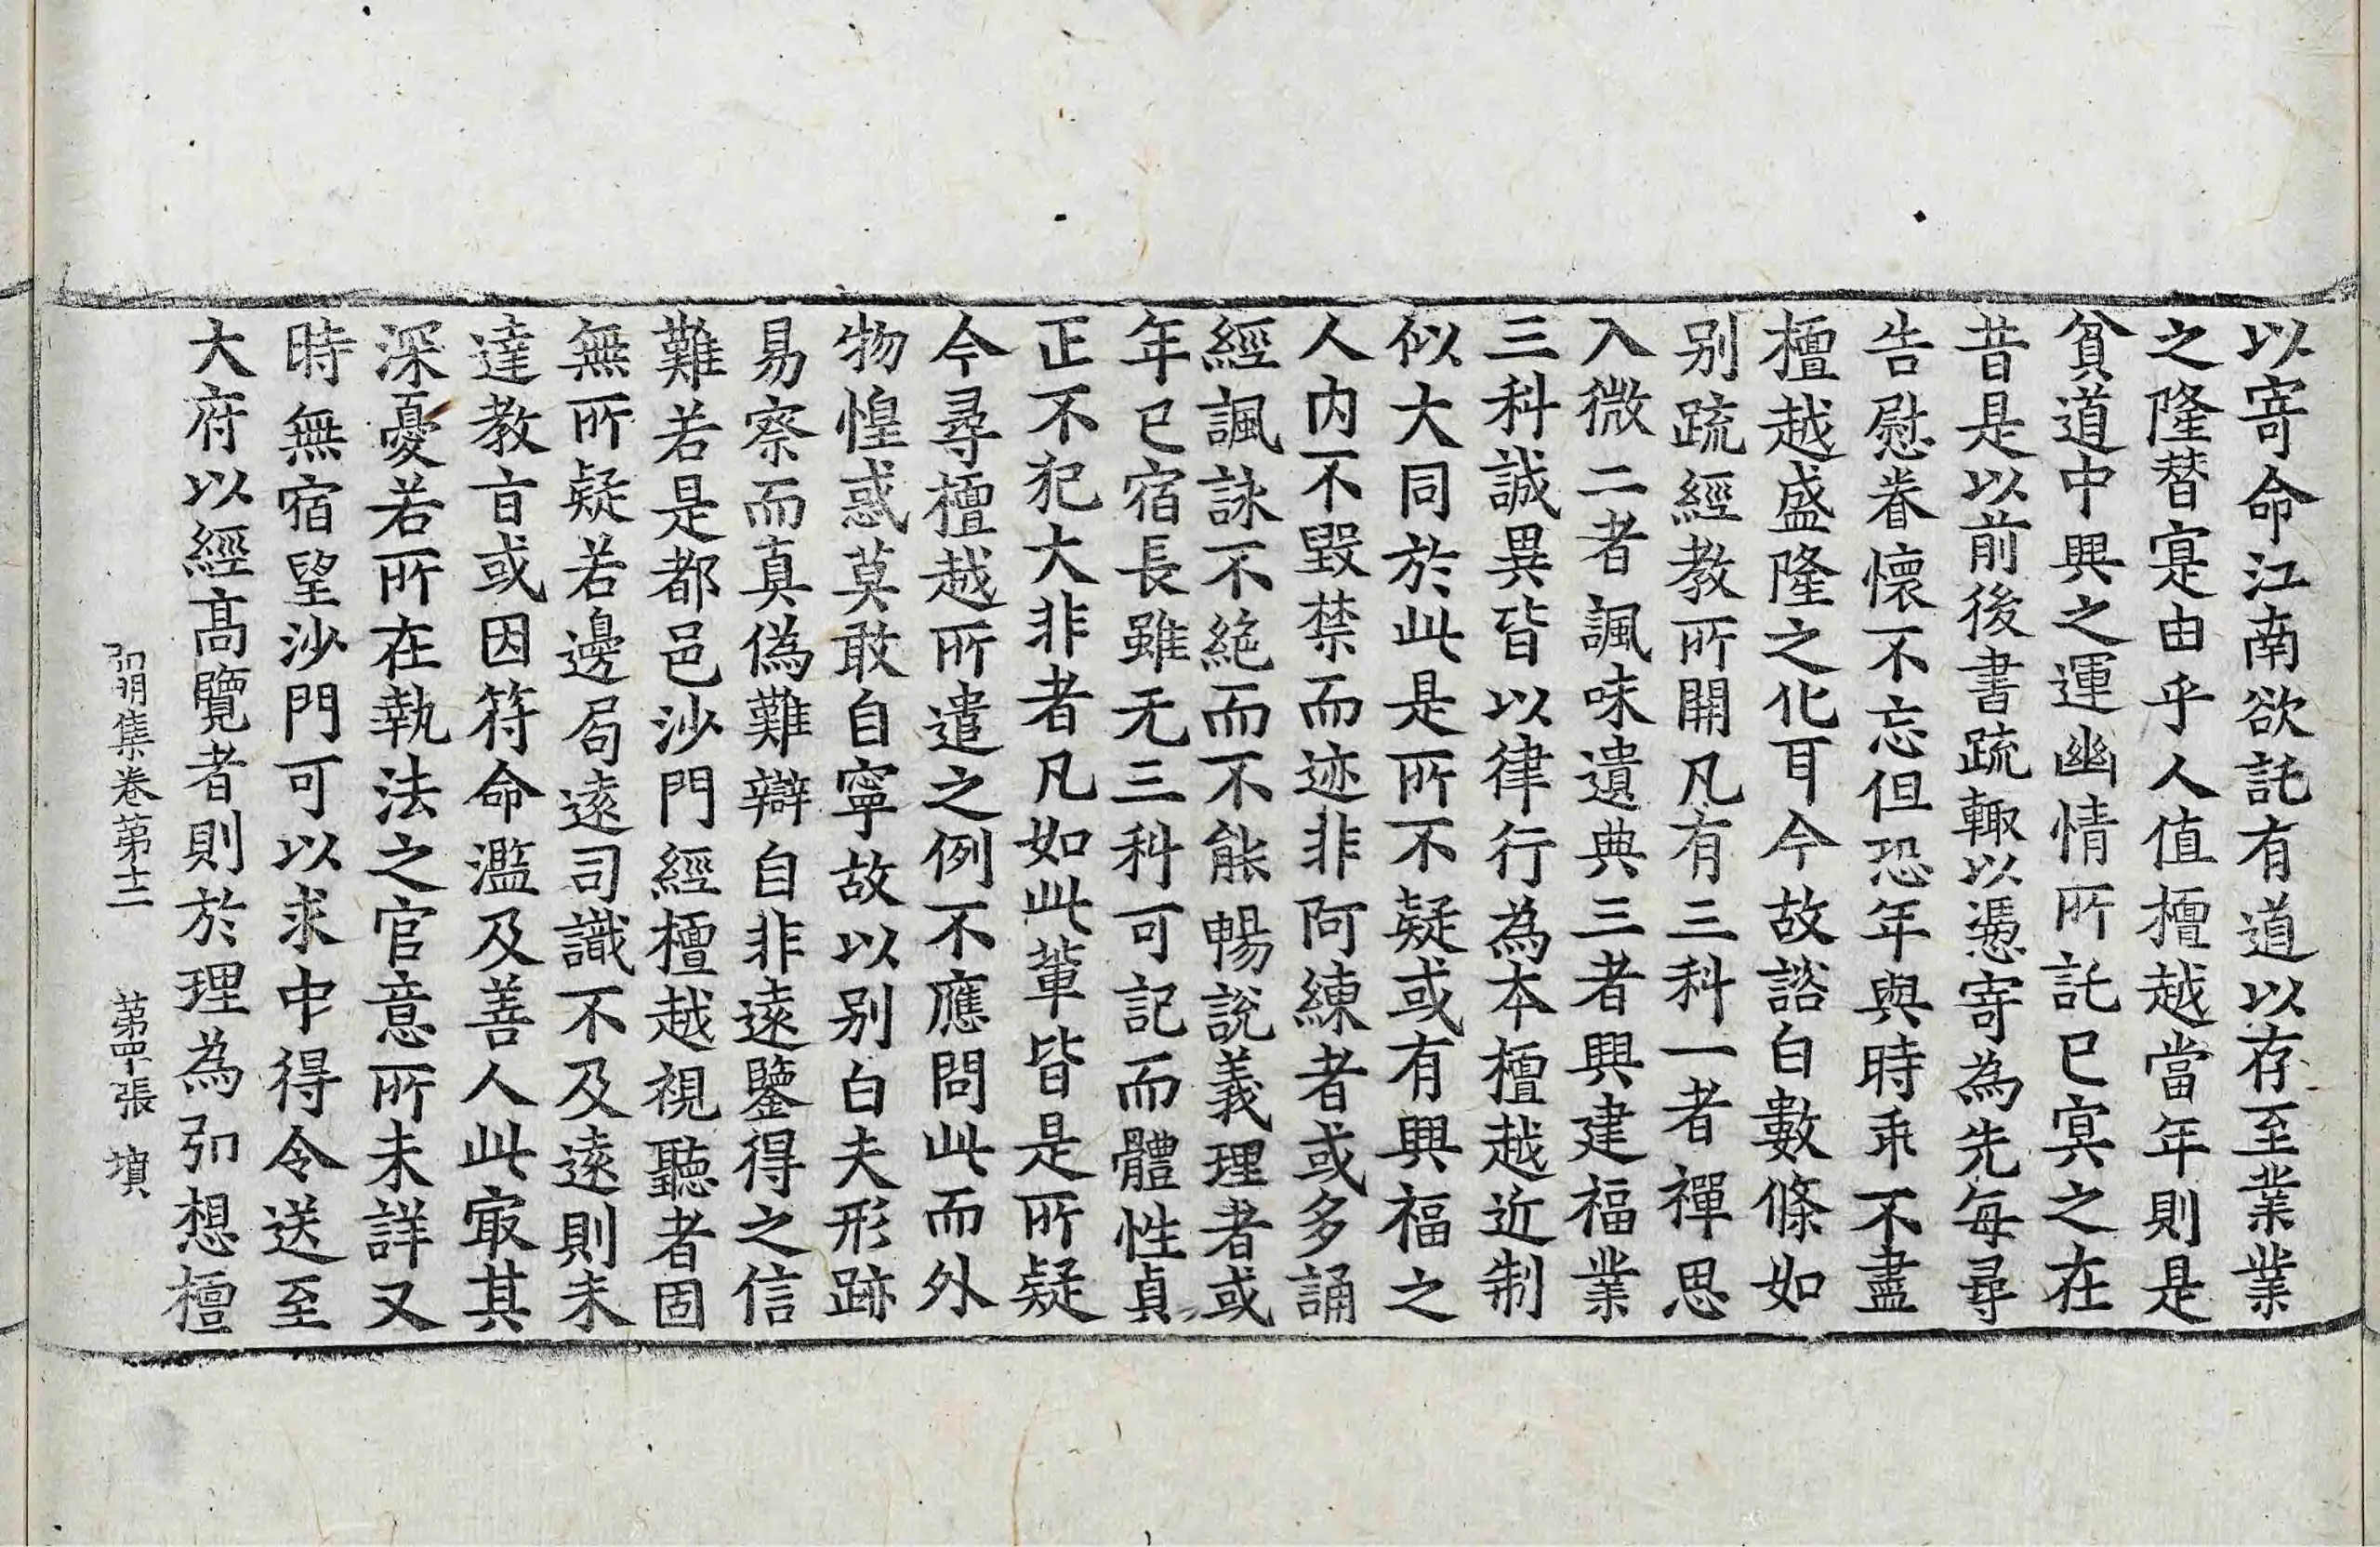 以寄命江南欲託有道以存至業業
之隆替寔由乎人值檀越當年則是
貧道中興之運幽情所託已冥之在
昔是以前後書疏輙以憑寄為先每尋
告慰眷懷不忘但恐年與時乖不盡
檀越盛隆之化耳今故諮白數條如
别疏經教所開凡有三科一者禪思
入微二者諷味遺典三者興建福業
三科誠異皆以律行為本檀越近制
似大同於此是所不疑或有興福之
人内不毀禁而迹非阿練者或多誦
經諷詠不絶而不能暢說義理者或
年已宿長雖无三科可記而體性貞
正不犯大非者凡如此輩皆是所疑
今尋檀越所遣之例不應問此而外
物惶惑莫敢自寧故以别白夫形跡
易察而真偽難辯自非遠鑒得之信
難若是都邑沙門經檀越視聽者固
無所疑若邊局遠司識不及遠則未
達教㫖或因符命濫及善人此冣其
深憂若所在執法之官意所未詳又
時無宿望沙門可以求中得令送至
大府以經髙覽者則於理為弘想檀
弘明集卷第十二 第四十張 塤